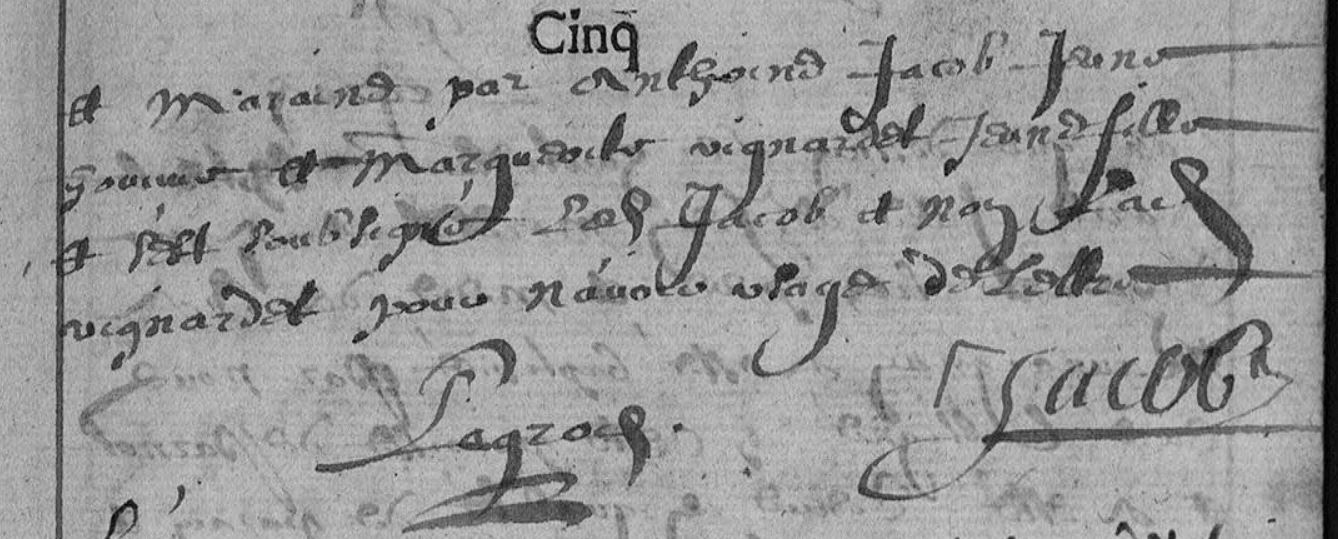 Cinq
et Maraine par Anthoine Jacob Jeune
homme et Marguerite vignardet Jeune fille
et s'est soubsigné Led Jacob et non Lad
vignardet pour n'avoir usage de Lettre
Jacob